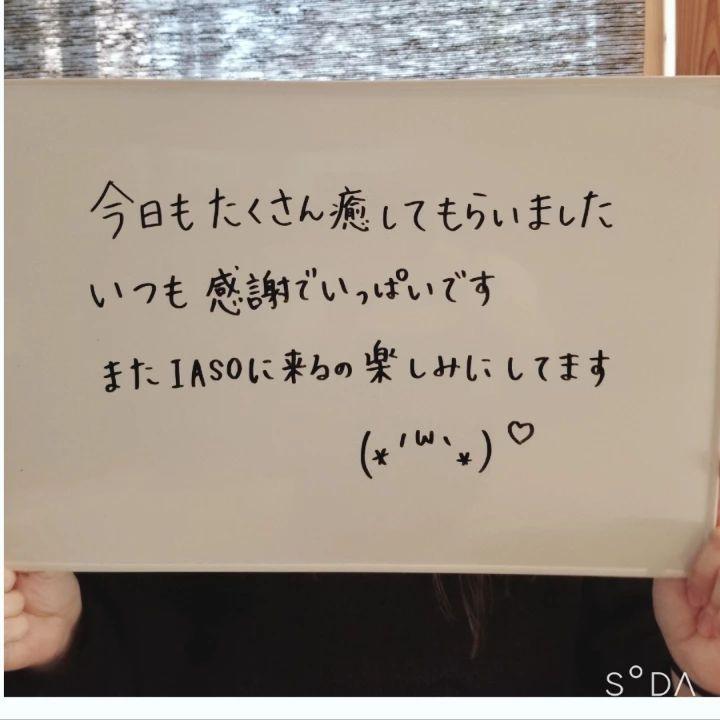 今日もたくさん癒してもらいました
いつも感謝でいっぱいです
またIASOに来るの楽しみにしてます
(*'ω`*)♡
SODA